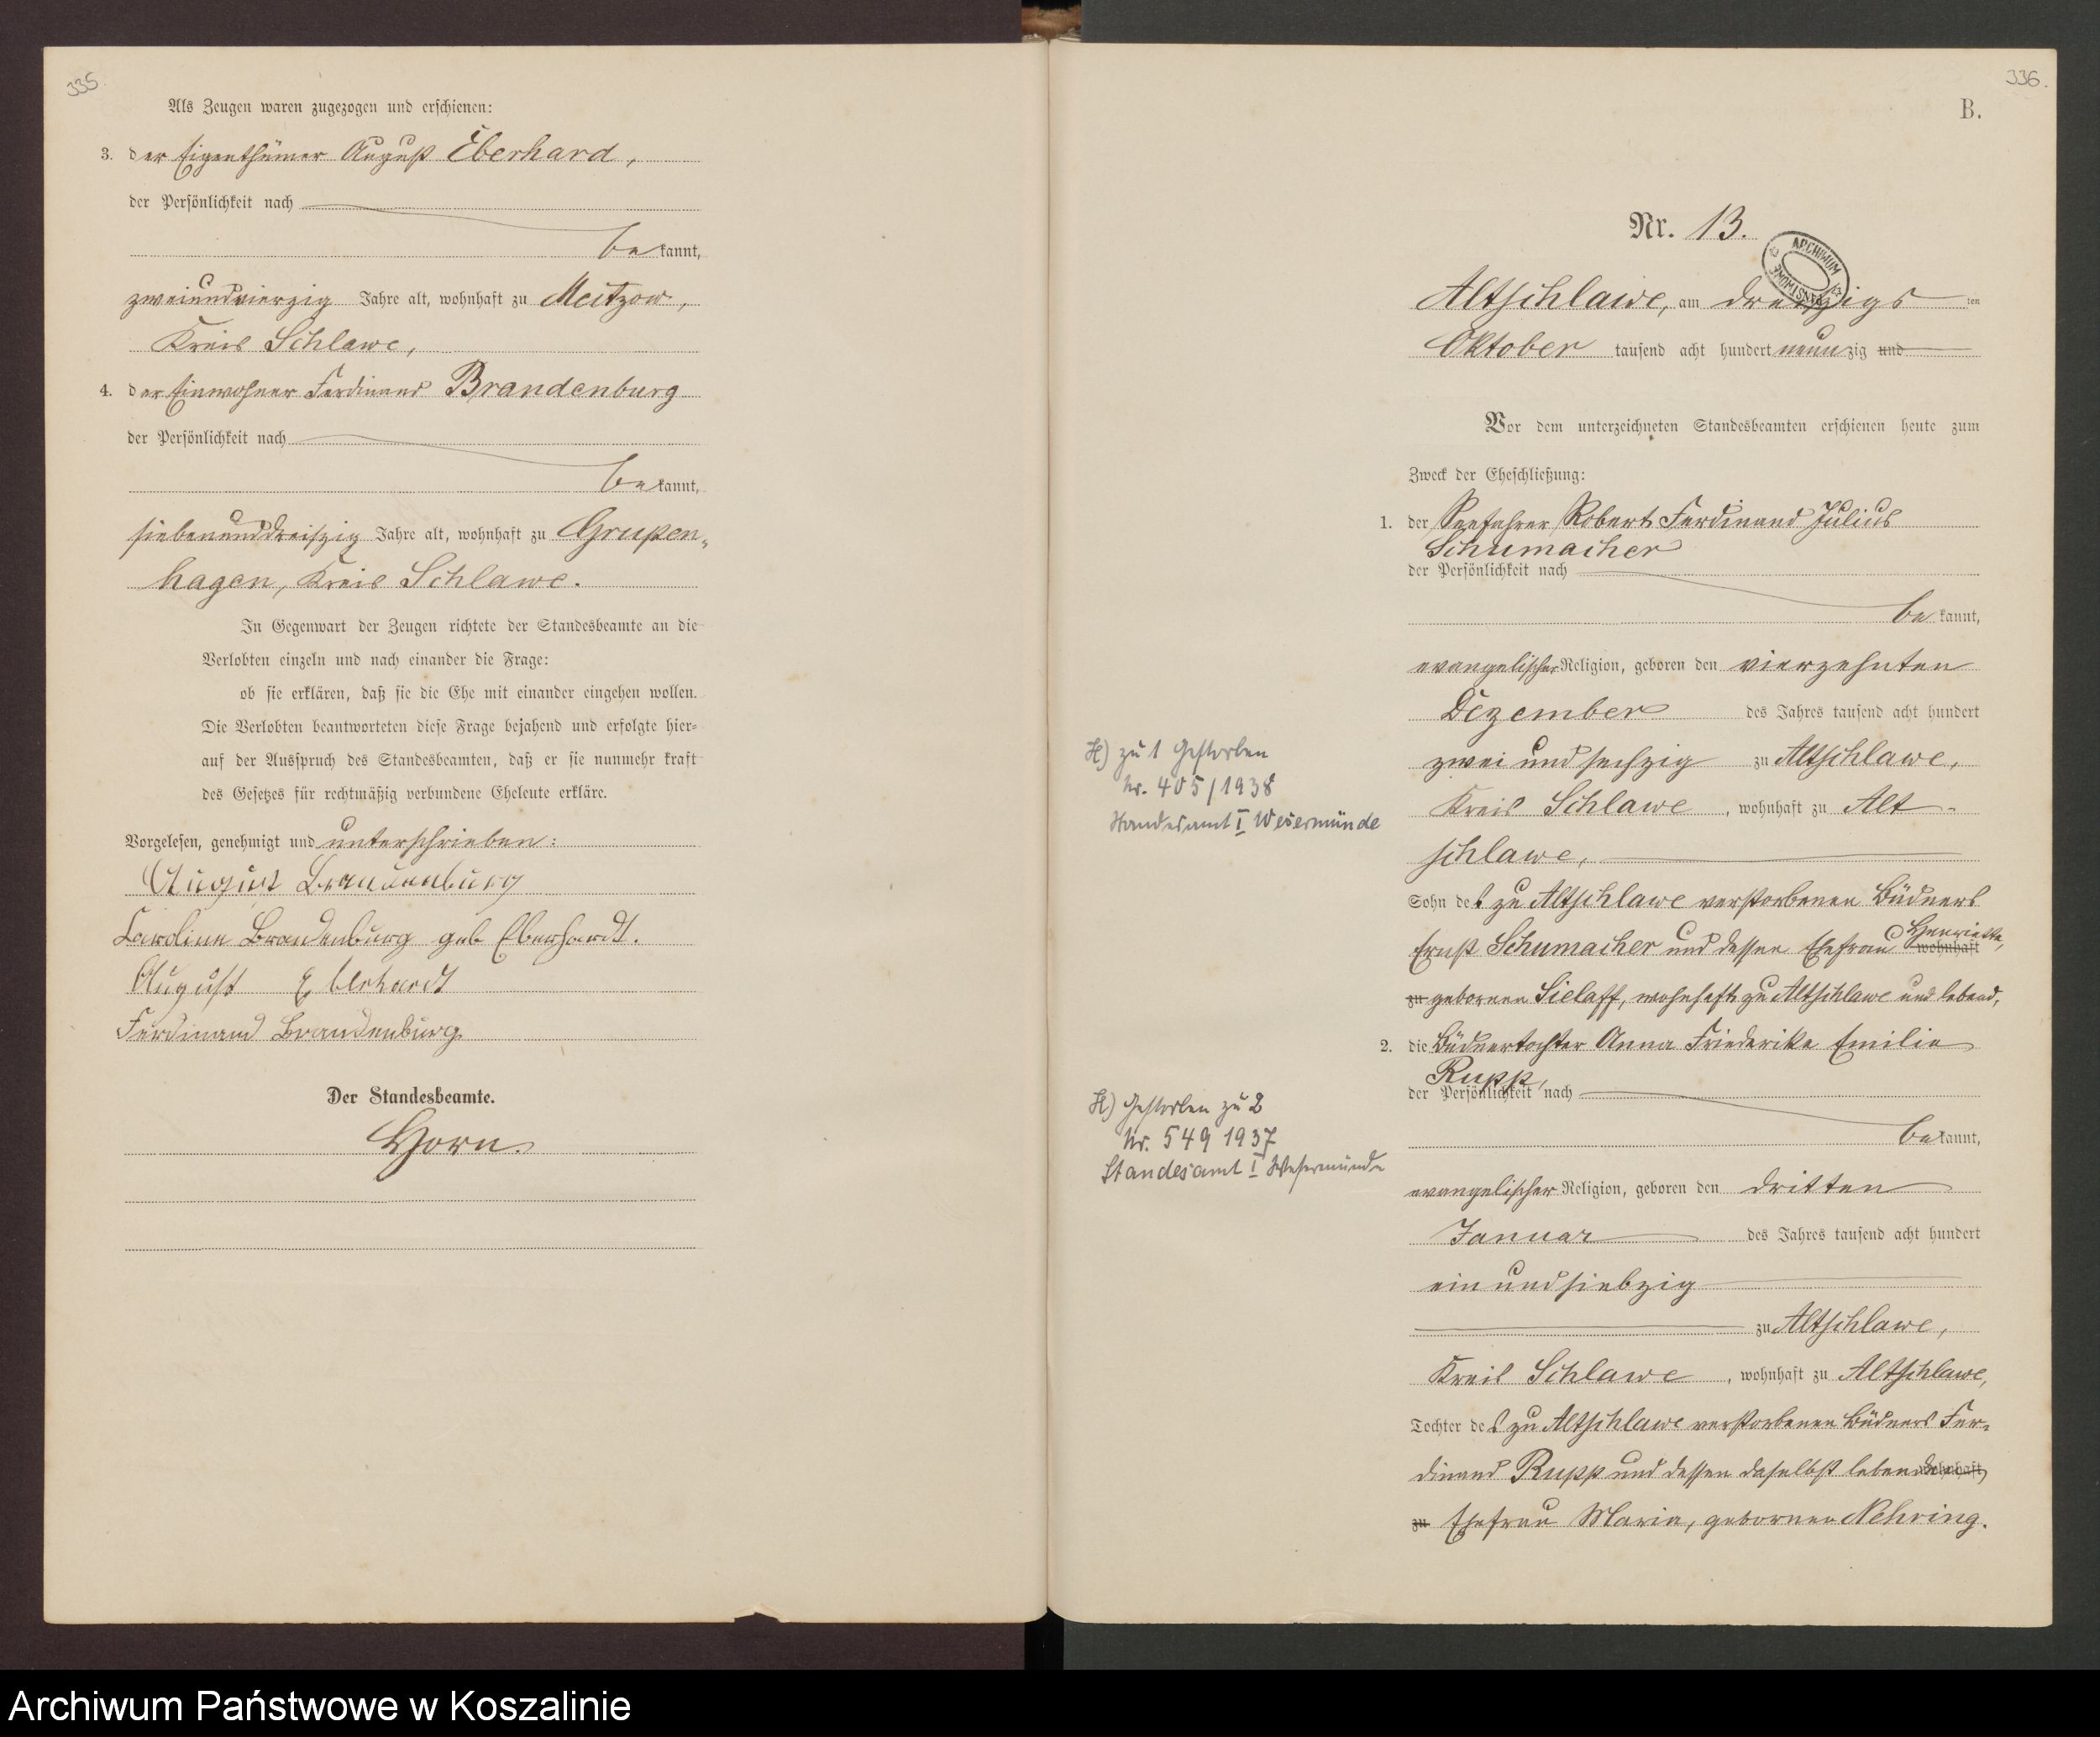 335.
Als Zeugen waren zugezogen und erschienen:
3. der Eigenthümer August Eberhard,
der Persönlichkeit nach
bekannt,
zweiundvierzig Jahre alt, wohnhaft zu Meitzow,
Kreis Schlawe,
4. der Einwohner Ferdinand Brandenburg
der Persönlichkeit nach
bekannt,
siebenunddreißzig Jahre alt, wohnhaft zu Grupen-
hagen, Kreis Schlawe.
In Gegenwart der Zeugen richtete der Standesbeamte an die
Verlobten einzeln und nach einander die Frage:
ob sie erklären, daß sie die Ehe mit einander eingehen wollen.
Die Verlobten beantworteten diese Frage bejahend und erfolgte hier-
auf der Ausspruch des Standesbeamten, daß er sie nunmehr kraft
des Gesetzes für rechtmäßig verbundene Eheleute erkläre.
Vorgelesen, genehmigt und unterschrieben:
August Brandenburg
Caroline Brandenburg geb Eberhardt.
August Eberhardt
Ferdinand Brandenburg
Der Standesbeamte.
Horn.
336.
B.
Nr. 13.
ARCHIWUM
Altschlawe, am dreizigsten
Oktober tausend acht hundert neunzig und
Vor dem unterzeichneten Standesbeamten erschienen heute zum
Zweck der Eheschließung:
1. der Seefahrer Robert Ferdinand Julius
Schumacher
der Persönlichkeit nach
bekannt,
evangelischer Religion, geboren den vierzehnten
Dezember des Jahres tausend acht hundert
zwei und sechzig zu Altschlawe,
Kreis Schlawe, wohnhaft zu Alt-
schlawe,
Sohn des zu Altschlawe verstorbenen Büdners
Ernst Schumacher und dessen Ehefrau Henriette, wohnhaft
zu gebornen Sielaff, wohnhaft zu Altschlawe und lebend,
2. die Büdnertochter Anna Friederike Emilie
Rupp,
der Persönlichkeit nach
bekannt,
evangelischer Religion, geboren den dritten
Januar des Jahres tausend acht hundert
ein und siebzig
zu Altschlawe,
Kreis Schlawe, wohnhaft zu Altschlawe,
Tochter des zu Altschlawe verstorbenen Büdners Fer-
dinand Rupp und dessen daselbst lebenden wohnhaft
zu Ehefrau Maria, gebornen Nehring.
H) zu 1 Gestorben
Nr. 405/1938
Standesamt I Wesermünde
H) Gestorben zu 2
Nr. 549 1937
Standesamt I Wesermünde
Archiwum Państwowe w Koszalinie